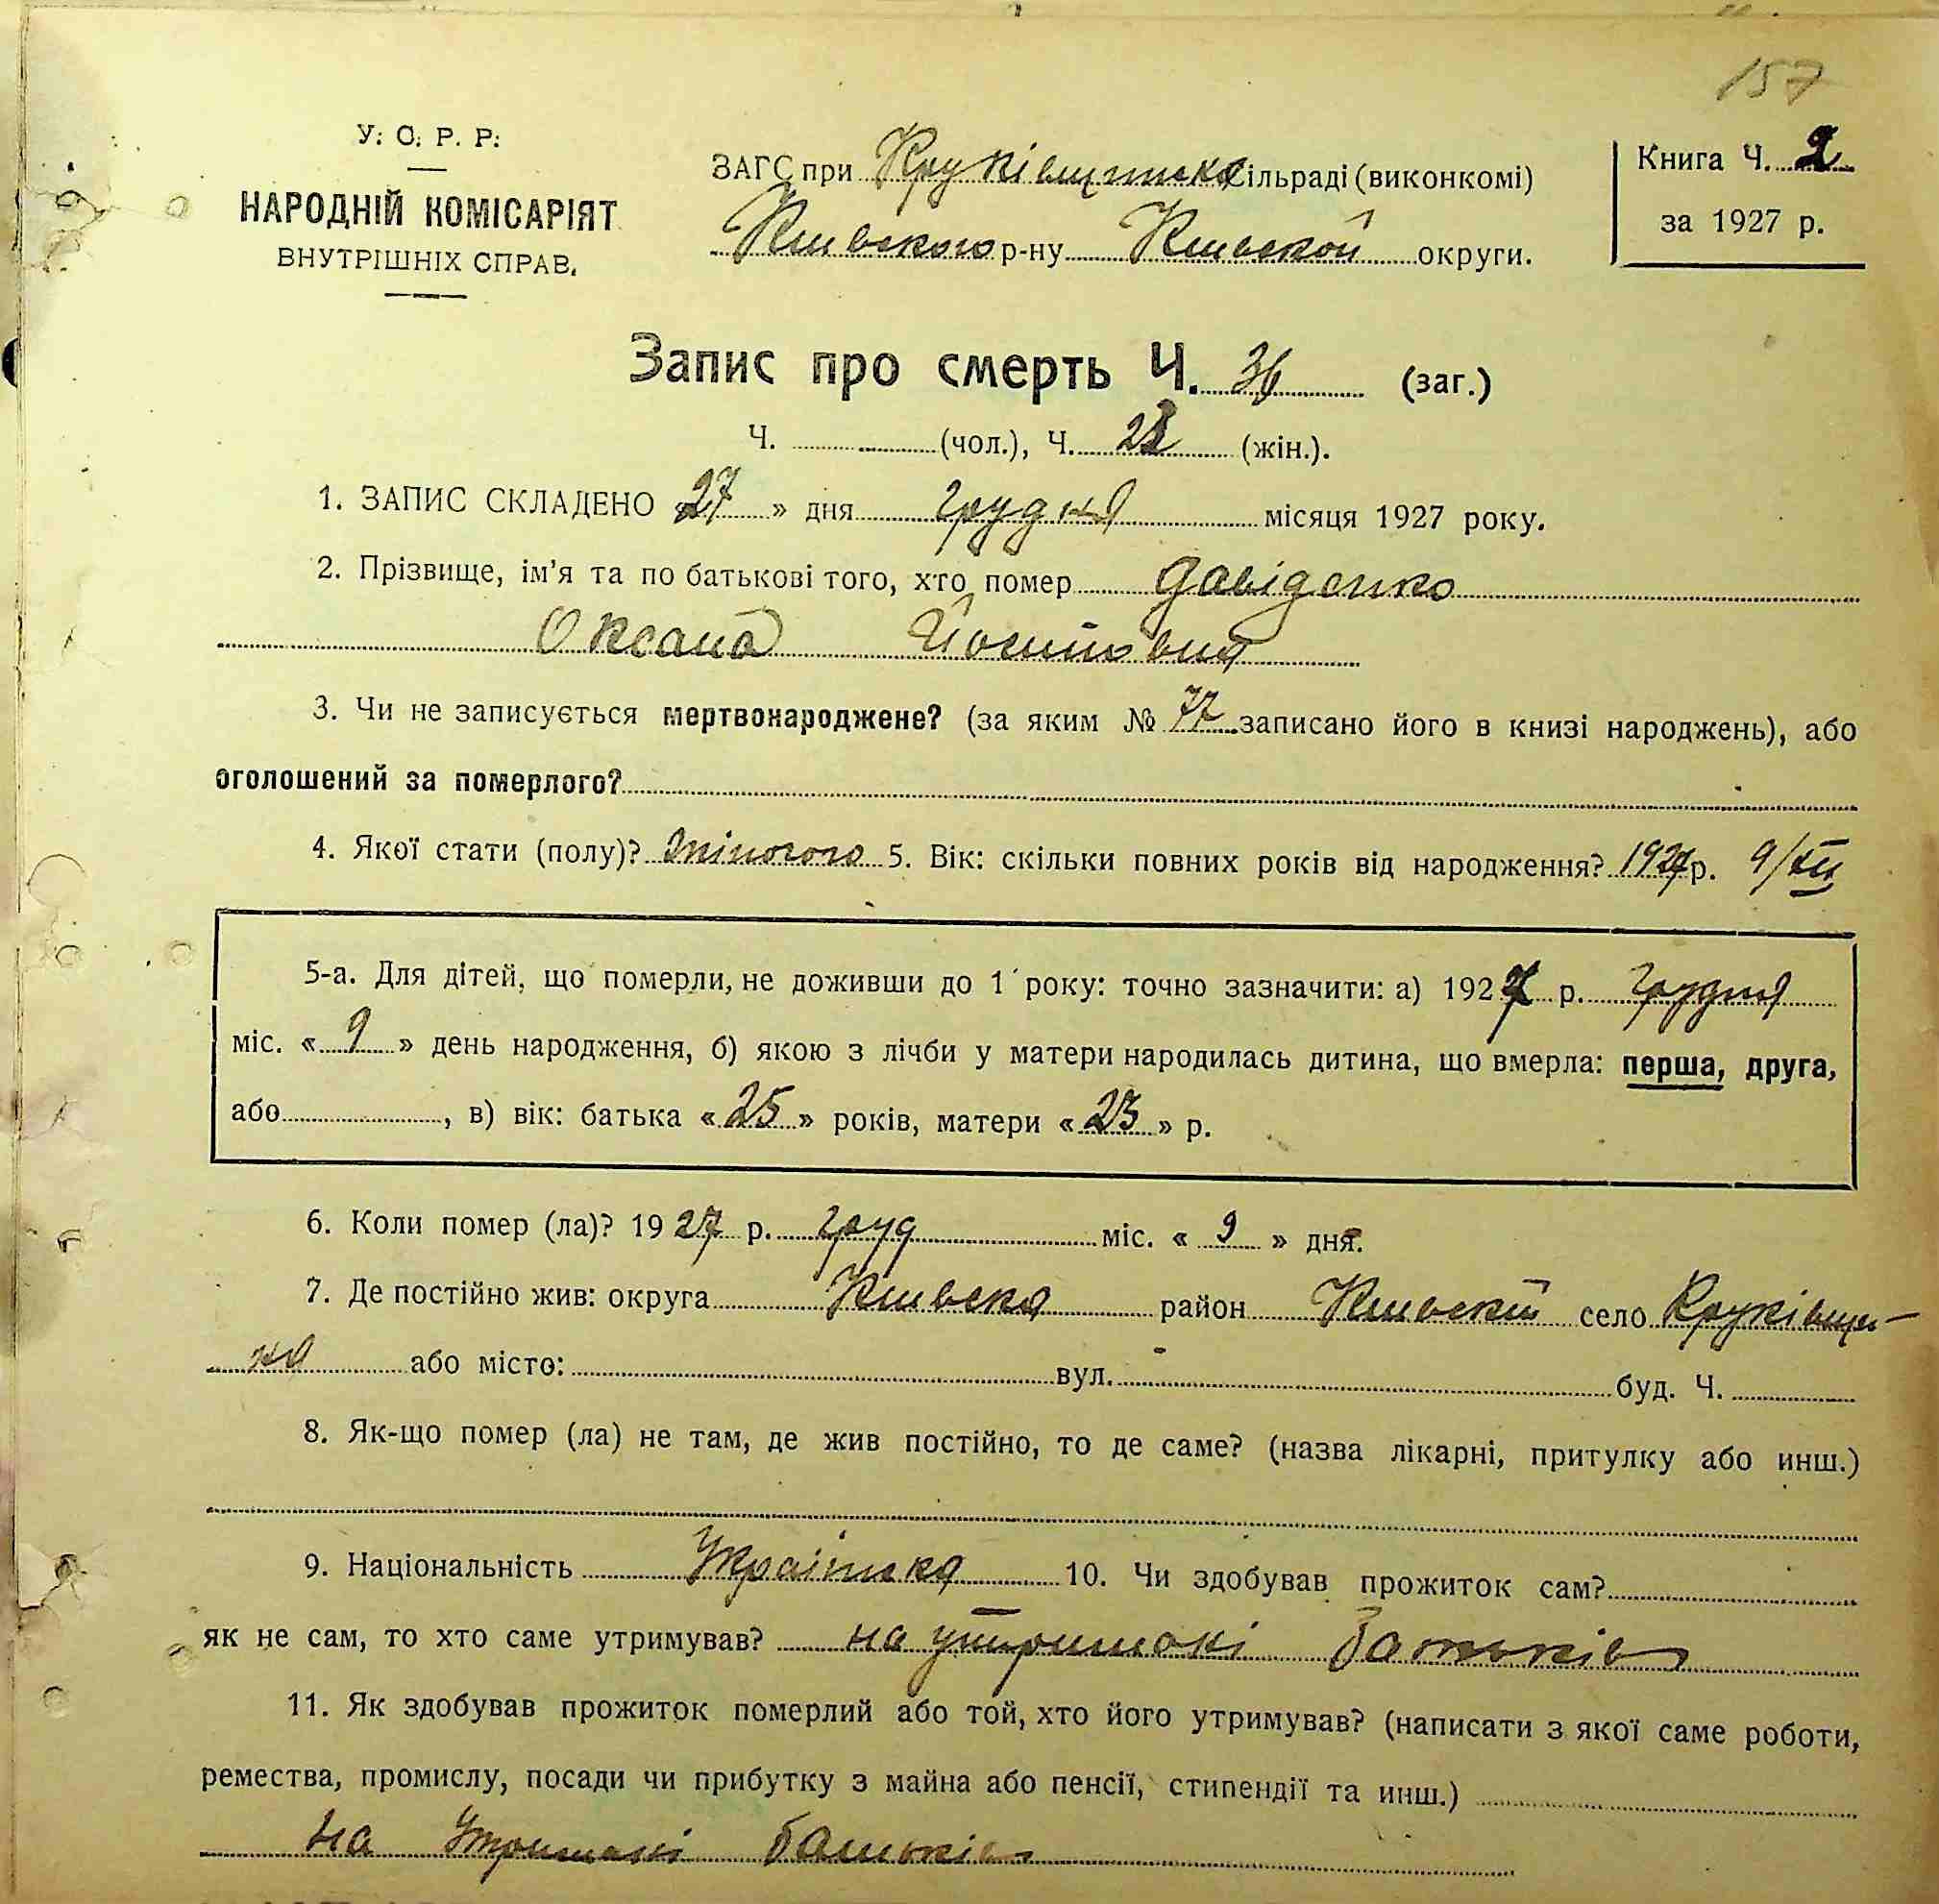 157
У. С. Р. Р.
НАРОДНІЙ КОМІСАРІЯТ
ВНУТРІШНІХ СПРАВ.
ЗАГС при Круківщинска сільраді (виконкомі)
Киівского р-ну Киівской округи.
Книга Ч. 2
за 1927 р.
Запис про смерть Ч. 36 (заг.)
Ч. (чол.), Ч. (жін.).
1. ЗАПИС СКЛАДЕНО 27 » дня грудня місяця 1927 року.
2. Прізвище, ім'я та по батькові того, хто помер Давіденко
Оксана
3. Чи не записується мертвонароджене? (за яким № 77 записано його в книзі народжень), або
оголошений за померлого?
4. Якої стати (полу)? жіночого 5. Вік: скільки повних років від народження? 1927 р. 9/XII
5-а. Для дітей, що померли, не доживши до 1 року: точно зазначити: а) 1927 р. грудня
міс. « 9 » день народження, б) якою з лічби у матери народилась дитина, що вмерла: перша, друга,
або , в) вік: батька « 25 » років, матери « 23 » р.
6. Коли помер (ла)? 1927 р. груд міс. « 9 » дня.
7. Де постійно жив: округа Киівска район Киівскій село Круківщи-
на або місто: вул. буд. Ч.
8. Як-що помер (ла) не там, де жив постійно, то де саме? (назва лікарні, притулку або инш.)
9. Національність Украінка 10. Чи здобував прожиток сам?
як не сам, то хто саме утримував? на утримані батьків
11. Як здобував прожиток померлий або той, хто його утримував? (написати з якої саме роботи,
ремества, промислу, посади чи прибутку з майна або пенсії, стипендії та инш.)
на утримані батьків